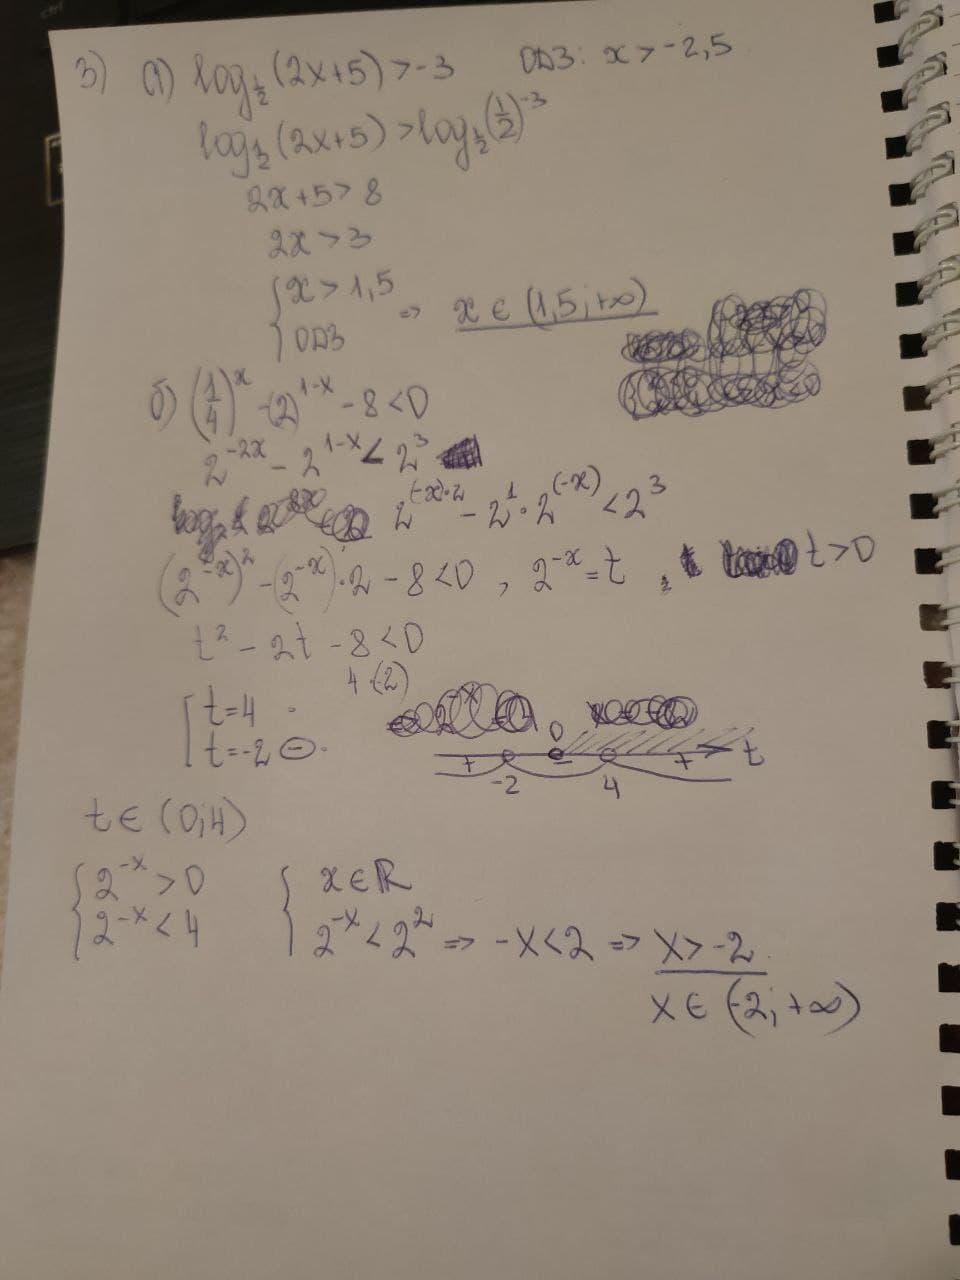 3) а) log½(2x+5) > -3 ОДЗ: x > -2,5
log½(2x+5) > log½(½)⁻³
2x+5 > 8
2x > 3
{ x > 1,5
{ ОДЗ => x ∈ (1,5; +∞)
б) (1/4)ˣ - (2)¹⁻ˣ - 8 < 0
2⁻²ˣ - 2¹⁻ˣ < 2³
2⁽⁻ˣ⁾·² - 2¹·2⁽⁻ˣ⁾ < 2³
(2⁻ˣ)² - (2⁻ˣ)·2 - 8 < 0, 2⁻ˣ = t, t > 0
t² - 2t - 8 < 0
4 (-2)
[ t = 4
[ t = -2 ⊖
0
+ - + t
-2 4
t ∈ (0;4)
{ 2⁻ˣ > 0 { x ∈ ℝ
{ 2⁻ˣ < 4 { 2⁻ˣ < 2² => -x < 2 => x > -2
x ∈ (-2; +∞)